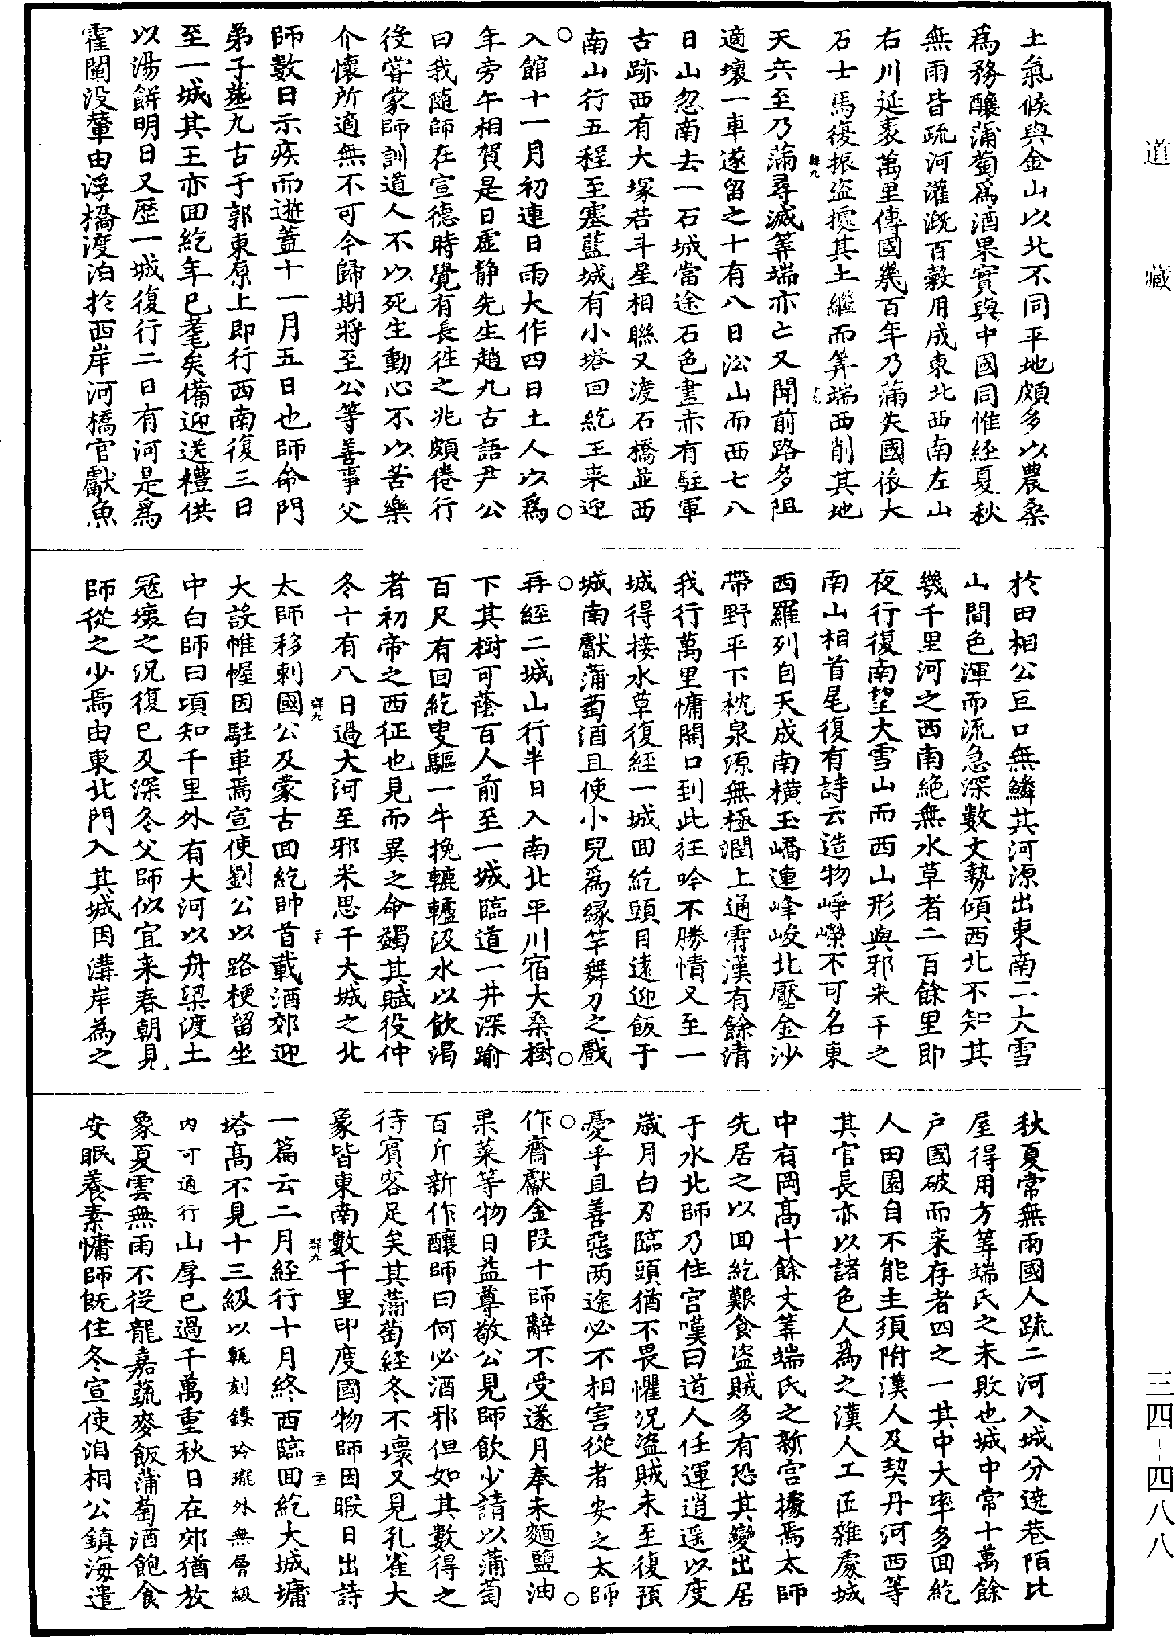 道藏
土氣候與金山以北不同平地頗多以農桑
爲務釀蒲萄爲酒果實與中國同惟經夏秋
無雨皆疏河灌溉百穀用成東北西南左山
右川延袤萬里傳國幾百年乃蒲失國依大
石士馬復振盜據其土繼而筭端西削其地
天兵至乃蒲尋滅筭端亦亡又聞前路多阻
適壞一車遂留之十有八日沿山而西七八
日山忽南去一石城當途石色盡赤有駐軍
古跡西有大塚若斗星相聯又渡石橋並西
南山行五程至塞藍城有小塔回紇王來迎
入館十一月初連日雨大作四日土人以爲
年旁午相賀是日虛靜先生趙九古語尹公
曰我隨師在宣德時覺有長往之兆頗倦行
役嘗蒙師訓道人不以死生動心不以苦樂
介懷所適無不可今歸期將至公等善事父
師數日示疾而逝蓋十一月五日也師命門
弟子塟九古于郭東原上即行西南復三日
至一城其王亦回紇年已耄矣備迎送禮供
以湯餅明日又歷一城復行二日有河是爲
霍闡没輦由浮橋渡泊於西岸河橋官獻魚
於田相公巨口無鱗其河源出東南二大雪
山間色渾而流急深數丈勢傾西北不知其
幾千里河之西南絶無水草者二百餘里即
夜行復南望大雪山而西山形與邪米干之
南山相首尾復有詩云造物崢嶸不可名東
西羅列自天成南橫玉嶠連峰峻北壓金沙
帶野平下枕泉源無極潤上通霄漢有餘清
我行萬里慵開口到此狂吟不勝情又至一
城得接水草復經一城回紇頭目遠迎飯于
城南獻蒲萄酒且使小兒爲緣竿舞刀之戲
再經二城山行半日入南北平川宿大桑樹
下其樹可蔭百人前至一城臨道一井深踰
百尺有回紇叟驅一牛挽轆轤汲水以飲渴
者初帝之西征也見而異之命蠲其賦役仲
冬十有八日過大河至邪米思干大城之北
太師移剌國公及蒙古回紇帥首載酒郊迎
大設帷幄因駐車焉宣使劉公以路梗留坐
中白師曰頃知千里外有大河以舟梁渡土
寇壞之況復已及深冬父師似宜來春朝見
師從之少焉由東北門入其城因溝岸為之
秋夏常無雨國人疏二河入城分遶巷陌比
屋得用方筭端氏之未敗也城中常十萬餘
户國破而來存者四之一其中大率多回紇
人田園自不能主須附漢人及契丹河西等
其官長亦以諸色人爲之漢人工匠雜處城
中有岡高十餘丈筭端氏之新宮據焉太師
先居之以回紇艱食盜賊多有恐其變出居
于水北師乃住宮嘆曰道人任運逍遥以度
歲月白刃臨頭猶不畏懼況盜賊未至復預
憂乎且善惡两途必不相害從者安之太師
作齋獻金段十師辭不受遂月奉米麵鹽油
果菜等物日益尊敬公見師飲少請以蒲萄
百斤新作釀師曰何必酒邪但如其數得之
待賓客足矣其蒲萄經冬不壞又見孔雀大
象皆東南數千里印度國物師因暇日出詩
一篇云二月經行十月終西臨回紇大城墉
塔高不見十三級以甎刻鏤玲瓏外無層級
内可通行山厚已過千萬重秋日在郊猶放
象夏雲無雨不從龍嘉蔬麥飯蒲萄酒飽食
安眠養素慵師既住冬宣使洎相公鎮海遣
三四-四八八